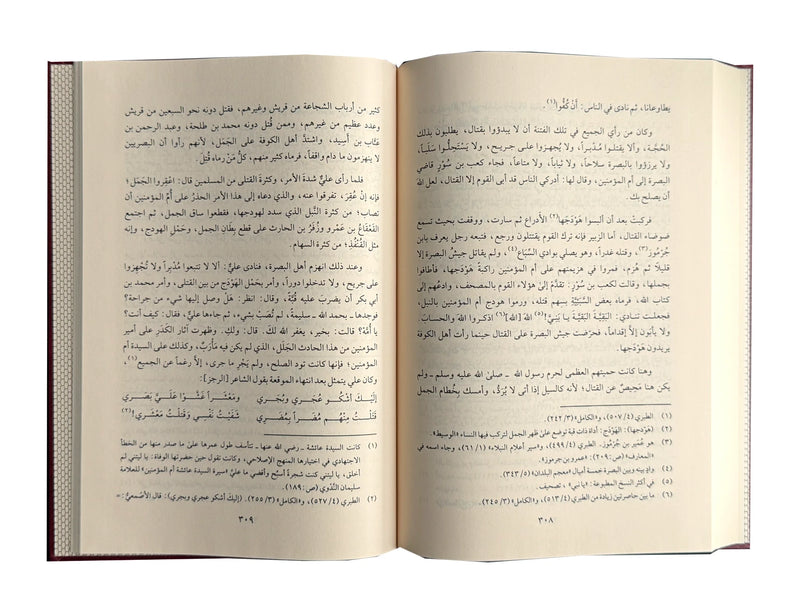 يطاوعانا، ثم نادى في الناس: أنْ كُفُّوا(١).
وكان من رأي الجميع في تلك الفتنة أن لا يبدؤوا بقتال، يطلبون بذلك
الحُجَّة، وألا يقتلوا مُدْبِراً، ولا يُجهِزوا على جريح، ولا يَسْتَحِلُّوا سَلَباً،
ولا يرزؤوا بالبصرة سلاحاً، ولا ثياباً، ولا متاعاً، فجاء كعب بن سُوْر قاضي
البصرة إلى أم المؤمنين، وقال لها: أدركي الناس قد أبى القوم إلا القتال، لعل الله
أن يصلح بك.
فركبتْ بعد أن ألبسوا هَوْدَجَها(٢) الأدراع ثم سارت، ووقفت بحيث تسمع
ضوضاء القتال، أما الزبير فإنه ترك القوم يقتتلون ورجع، فتبعه رجل يعرف بابن
جُرْمُوز(٣)، وقتله غدراً، وهو يصلي بوادي السِّبَاع(٤)، ولم يقاتل جيشُ البصرة إلا
قليلاً ثم هُزم، فمروا في هزيمتهم على أم المؤمنين راكبةً هَوْدَجَها، فأطافوا
بجملها، وقالت لكعب بن سُوْر: تقدَّمْ إلى هؤلاء القوم بالمصحف، وادعُهم إلى
كتاب الله، فرماه بعض السَّبَئِيَّة بسهم قتله، ورموا هودج أم المؤمنين بالنبل،
فجعلت تنادي: البَقِيَّةَ البَقِيَّةَ يا بَنِيَّ!(٥) اللهَ [الله](٦) اذكروا اللهَ والحسابَ.
ولا يأبون إلا إقداماً، فحرَّضت جيشَ البصرة على القتال حينما رأت أهل الكوفة
يريدون هَوْدَجَها.
وهنا كانت حميتهم العظمى لحرم رسول الله ـ صلى الله عليه وسلم ـ ولم
يكن هنا مَحِيصٌ عن القتال؛ لأنه كالسيل إذا أتى لا يُرَدُّ، وأمسك بخُطام الجمل
(١) الطبري (٥٠٧/٤)، و«الكامل» (٢٤٢/٣).
(٢) (هودجها): الهَوْدَج: أداة ذات قبة توضع على ظهر الجمل لتركب فيها النساء «الوسيط».
(٣) هو عُمَير بن جُرْمُوز. الطبري (٤٩٩/٤)، و«سير أعلام النبلاء» (٦١/١)، وجاء اسمه في
«المعارف» (ص: ٢٠٩): (عمرو بن جرموز).
(٤) وادٍ بينه وبين البصرة خمسة أميال «معجم البلدان» (٣٤٣/٥).
(٥) في أكثر النسخ المطبوعة: «يا نبي»، تصحيف.
(٦) ما بين حاصرتين زيادة من الطبري (٥١٣/٤)، و«الكامل» (٢٤٥/٣).
٣٠٨
كثير من أرباب الشجاعة من قريش وغيرهم، فقتل دونه نحو السبعين من قريش
وعدد عظيم من غيرهم، وممن قُتل دونه محمد بن طلحة، وعبد الرحمن بن
عتَّاب بن أَسِيد، واشتدَّ أهل الكوفة على الجَمَل، لأنهم رأوا أن البصريين
لا ينهزمون ما دام واقفاً، فرماه كثير منهم، كلُّ مَنْ رماه قُتل.
فلما رأى عليٌّ شدةَ الأمر، وكثرةَ القتلى من المسلمين قال: اعقِروا الجمل؛
فإنه إنْ عُقِرَ، تفرقوا عنه، والذي دعاه إلى هذا الأمر الحذرُ على أُمِّ المؤمنين أن
تصاب؛ من كثرة النَّبل الذي سدد لهودجها، فقطعوا ساق الجمل، ثم اجتمع
القَعْقَاعُ بن عَمْرٍو وزُفَرُ بن الحارث على قطع بِطَانِ الجمل، وحَمْلِ الهودج، وإنه
مثل القُنْفُذِ؛ من كثرة السهام.
وعند ذلك انهزم أهل البصرة، فنادى عليٌّ: ألا لا تتبعوا مُدْبِراً ولا تُجهِزوا
على جريح، ولا تدخلوا دوراً، وأمر بحَمْلِ الهَوْدَج من بين القتلى، وأمر محمد بن
أبي بكر أن يضرب عليه قُبَّةً، وقال: انظر: هَلْ وصل إليها شيء من جراحة؟
فوجدها ـ بحمد الله ـ سليمة، لم تُصَبْ بشيء، ثم جاءها علي، فقال: كيف أنت؟
يا أُمَّهْ؟ قالت: بخير، يغفر الله لكَ. قال: ولكِ. وظهرت آثار الكَدَر على أمير
المؤمنين من هذا الحادث الجَلَل، الذي لم يكن فيه مَأْرَبٌ، وكذلك على السيدة أم
المؤمنين؛ فإنها كانت تود الصلح، ولم يَجْرِ ما جرى، إلا رغماً عن الجميع(١)،
وكان علي يتمثل بعد انتهاء الموقعة بقول الشاعر [الرجز]:
إِلَيْكَ أَشْكُو عُجَرِي وبُجَرِي ومَعْشَراً غَشَّوْا عَلَيَّ بَصَرِي
قَتَلْتُ مِنْهُم مُضَراً بِمُضَرِي شَفَيْتُ نَفْسِي وَقَتَلْتُ مَعْشَرِي!(٢)
(١) كانت السيدة عائشة ـ رضي الله عنها ـ تتأسف طول عمرها على ما صدر منها من الخطأ
الاجتهادي في اختيارها المنهج الإصلاحي، وكانت تقول حين حضرتها الوفاة: يا ليتني لم
أخلق، يا ليتني كنت شجرةً أسبح وأقضي ما عليَّ «سيرة السيدة عائشة أم المؤمنين» للعلامة
سليمان النَّدْوي (ص: ١٨٩).
(٢) الطبري (٥٢٧/٤)، و«الكامل» (٢٥٥/٣). (إليكَ أشكو عجري وبجري): قال الأَصْمعيُّ: =
٣٠٩